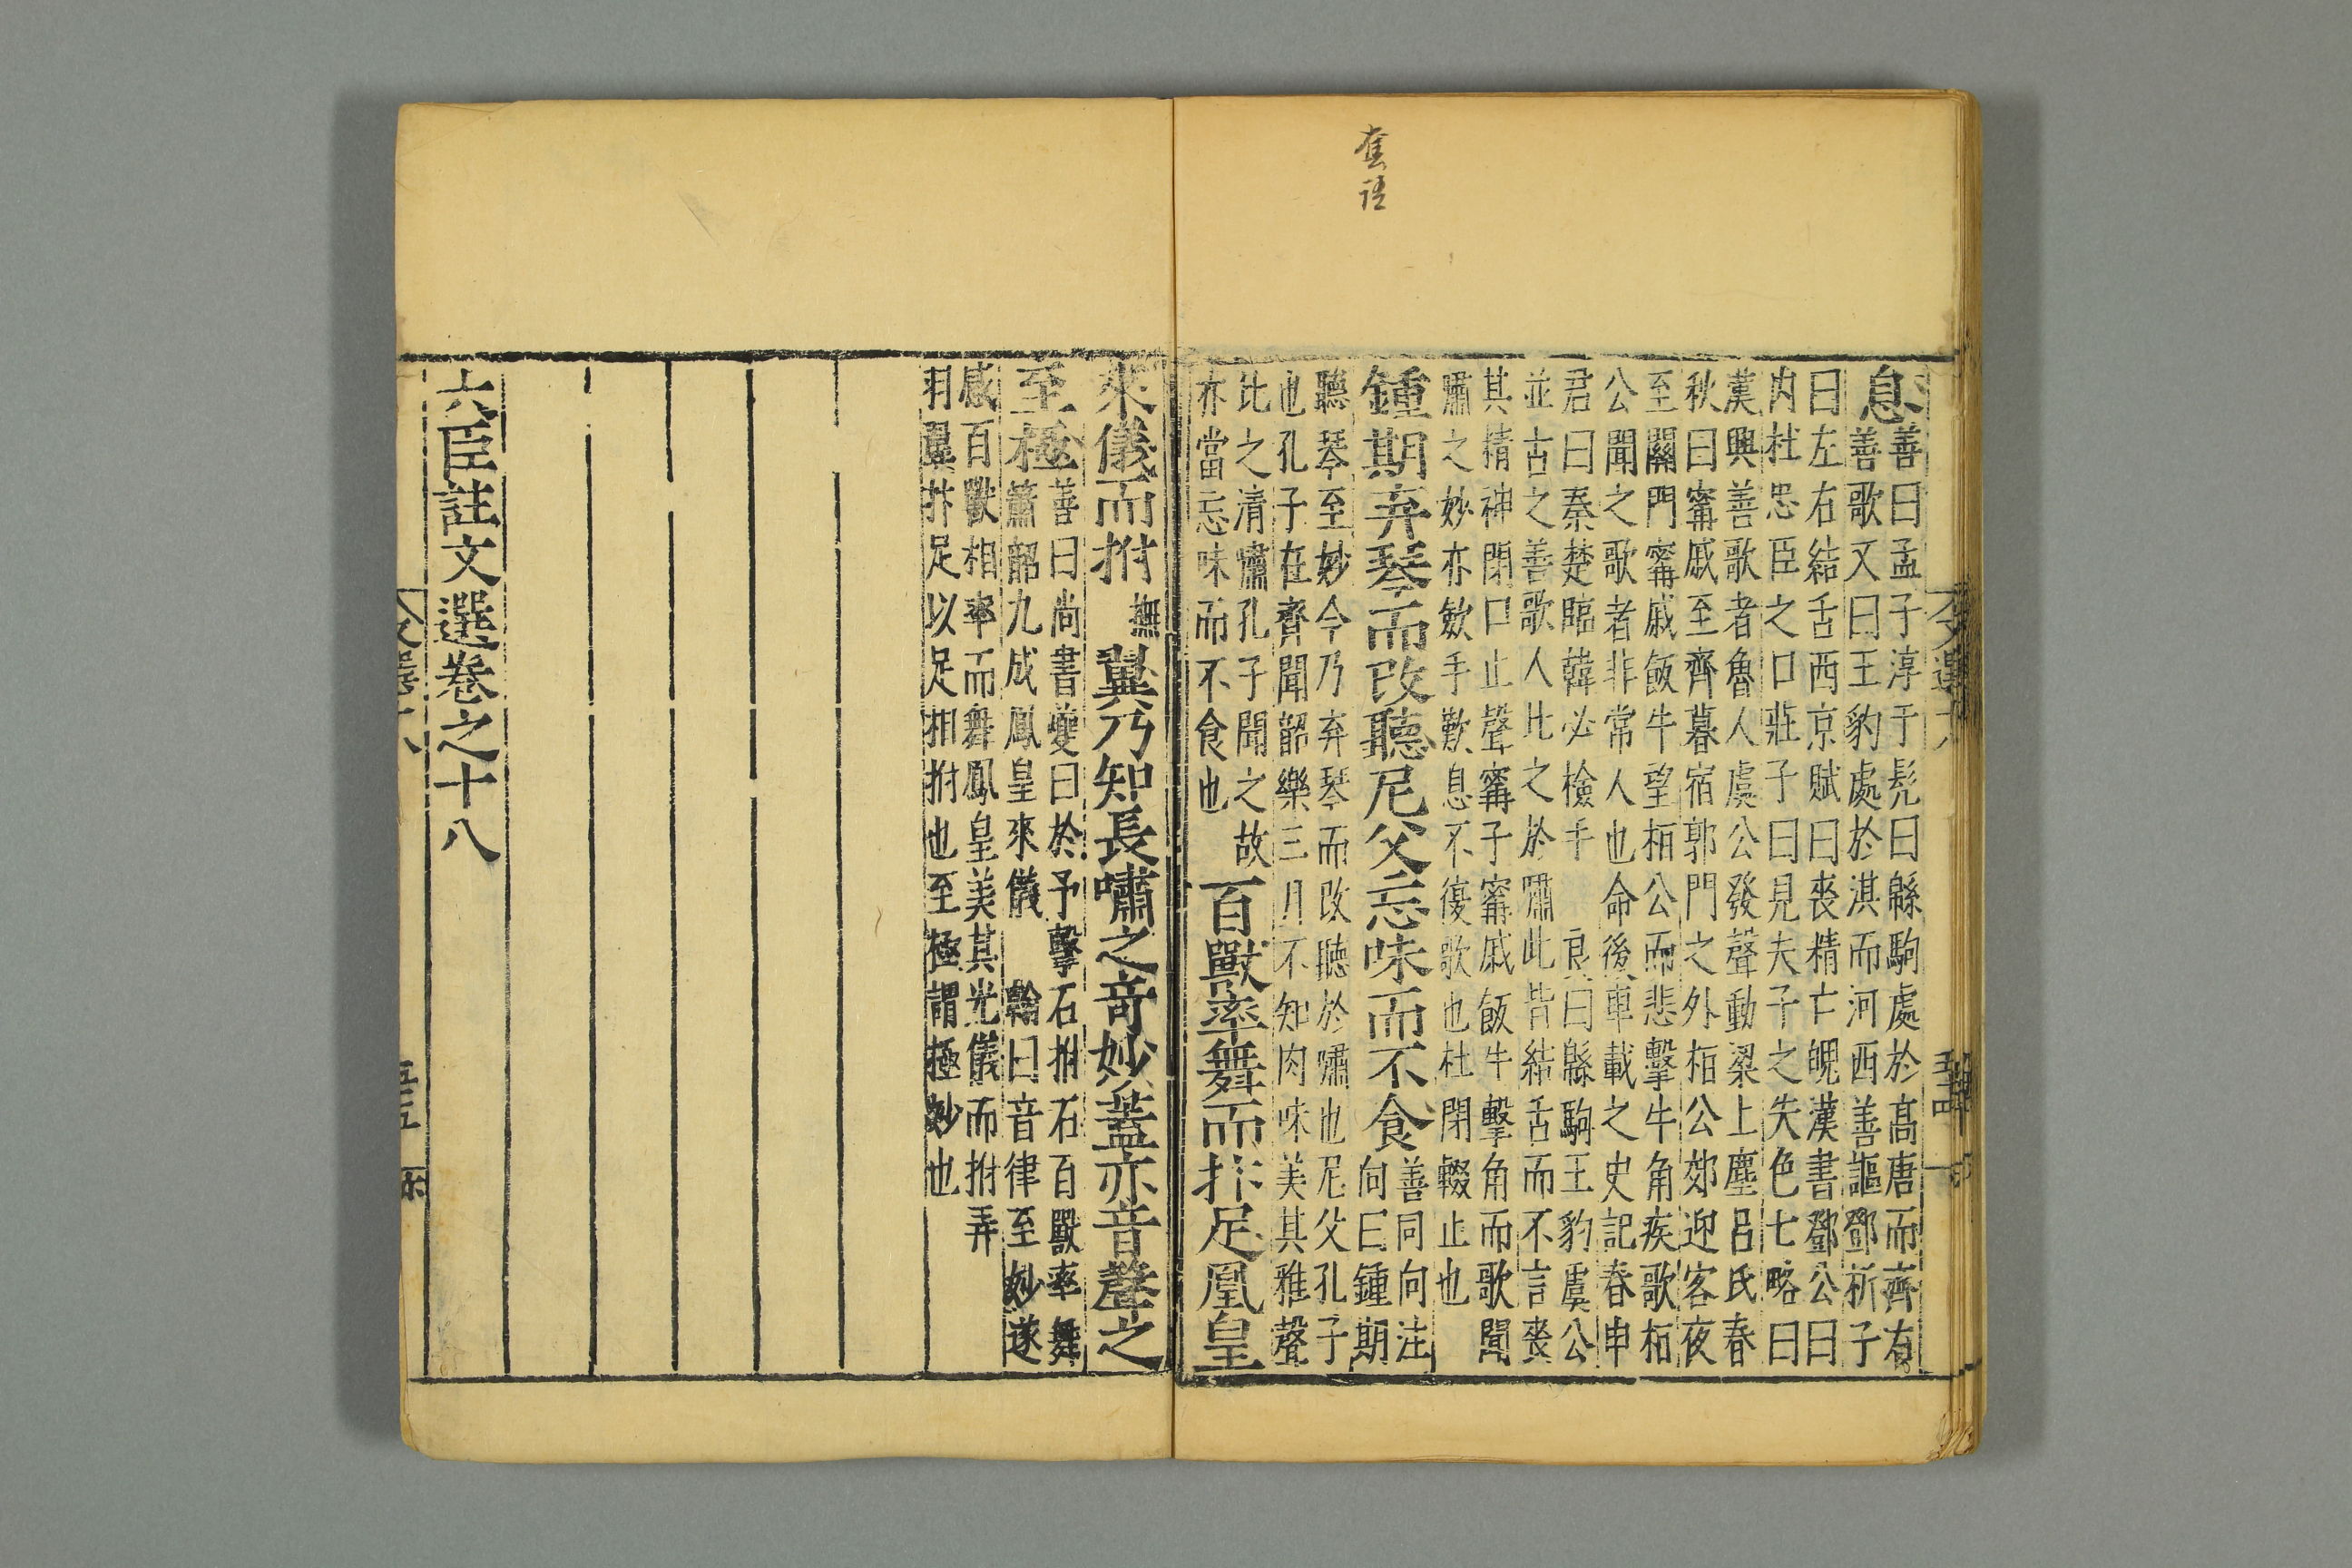 套語
息善曰孟子淳于髡曰緜駒處於高唐而齊有
善歌又曰王豹處於淇而河西善謳鄧析子
曰左右結舌西京賦曰喪精亡魄漢書鄧公曰
內杜忠臣之口莊子曰見夫子之失色七略曰
漢興善歌者魯人虞公發聲動梁上塵呂氏春
秋曰甯戚至齊暮宿郭門之外栢公郊迎客夜
至關門甯戚飯牛望栢公而悲擊牛角疾歌栢
公聞之歌者非常人也命後車載之史記春申
君曰秦楚臨韓必檢手 良曰緜駒王豹虞公
並古之善歌人比之於嘯此皆結舌而不言喪
其精神閉口止聲甯子甯戚飯牛擊角而歌聞
嘯之妙亦斂手歎息不復歌也杜閉輟止也
鍾期弃琴而改聽尼父忘味而不食善同向注
向曰鍾期
聽琴至妙今乃弃琴而改聽於嘯也尼父孔子
也孔子在齊聞韶樂三月不知肉味美其雅聲
比之清嘯孔子聞之故
亦當忘味而不食也
百獸率舞而抃足鳳皇
來儀而拊撫翼乃知長嘯之奇妙蓋亦音聲之
至極善曰尚書夔曰於予擊石拊石百獸率舞
簫韶九成鳳皇來儀 翰曰音律至妙遂
感百獸相率而舞鳳皇美其光儀而拊弄
羽翼抃足以足相拊也至極謂極妙也
六臣註文選卷之十八